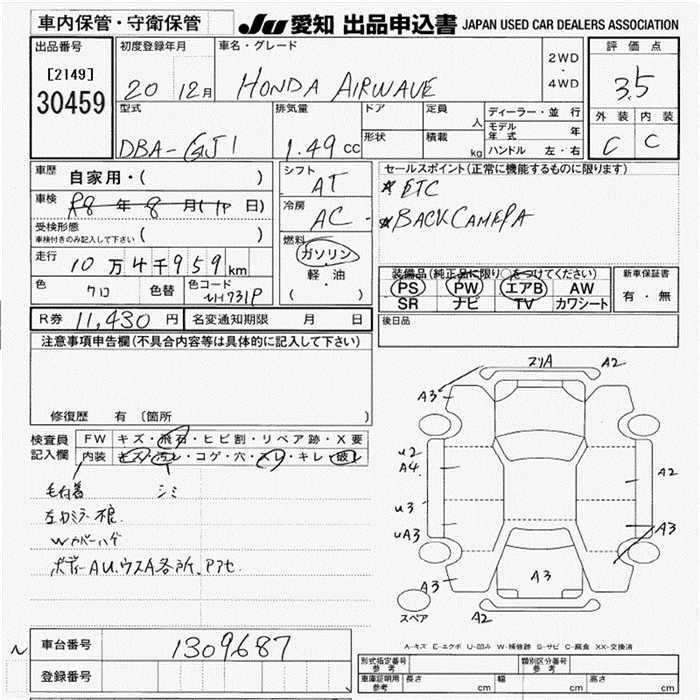 車内保管・守衛保管 JU 愛知 出品申込書 JAPAN USED CAR DEALERS ASSOCIATION
出品番号 初度登録年月 車名・グレード 評価点
[2149] 2WD
30459 20 12月 HONDA AIRWAVE ・ 3.5
4WD
型式 排気量 ドア 定員 人 ディーラー・並行 外装 内装
モデル年式 年
DBA-GJ1 1.49cc 形状 積載 kg ハンドル 左・右 C C
車歴 自家用・( ) シフト AT セールスポイント(正常に機能するものに限ります)
車検 R8年8月( 日) 冷房 AC ★ETC
受検形態 ( ) ★BACK CAMERA
車検付きのみ記入して下さい 燃料
走行 10万4千959km ガソリン
軽・油
( )
装備品(純正品に限り○をつけてください) 新車保証書
色 クロ 色替 色コード NH731P PS PW エアB AW 有・無
SR ナビ TV カワシート
R券 11,430円 名変通知期限 月 日 後日品
注意事項申告欄(不具合内容等は具体的に記入して下さい)
修復歴 有 〔箇所 〕
検査員 FW キズ・飛石・ヒビ割・リペア跡・X要
記入欄 内装 キズ・汚レ・コゲ・穴・スレ・キレ・破レ
シミ
左カミラー不良
Wカバーハゲ
ボディーAU、ウスA各所、
スリA A2
A3
U2
A4 A2
U3
UA3 A3
A3
A3
スペア A2
A-キズ E-エクボ U-凹み W-補修跡 S-サビ C-腐食 XX-交換済
車台番号 1309687
登録番号
型式指定番号 参考 類別区分番号 参考
車庫証明用 参考 長さ cm 幅 cm 高さ cm